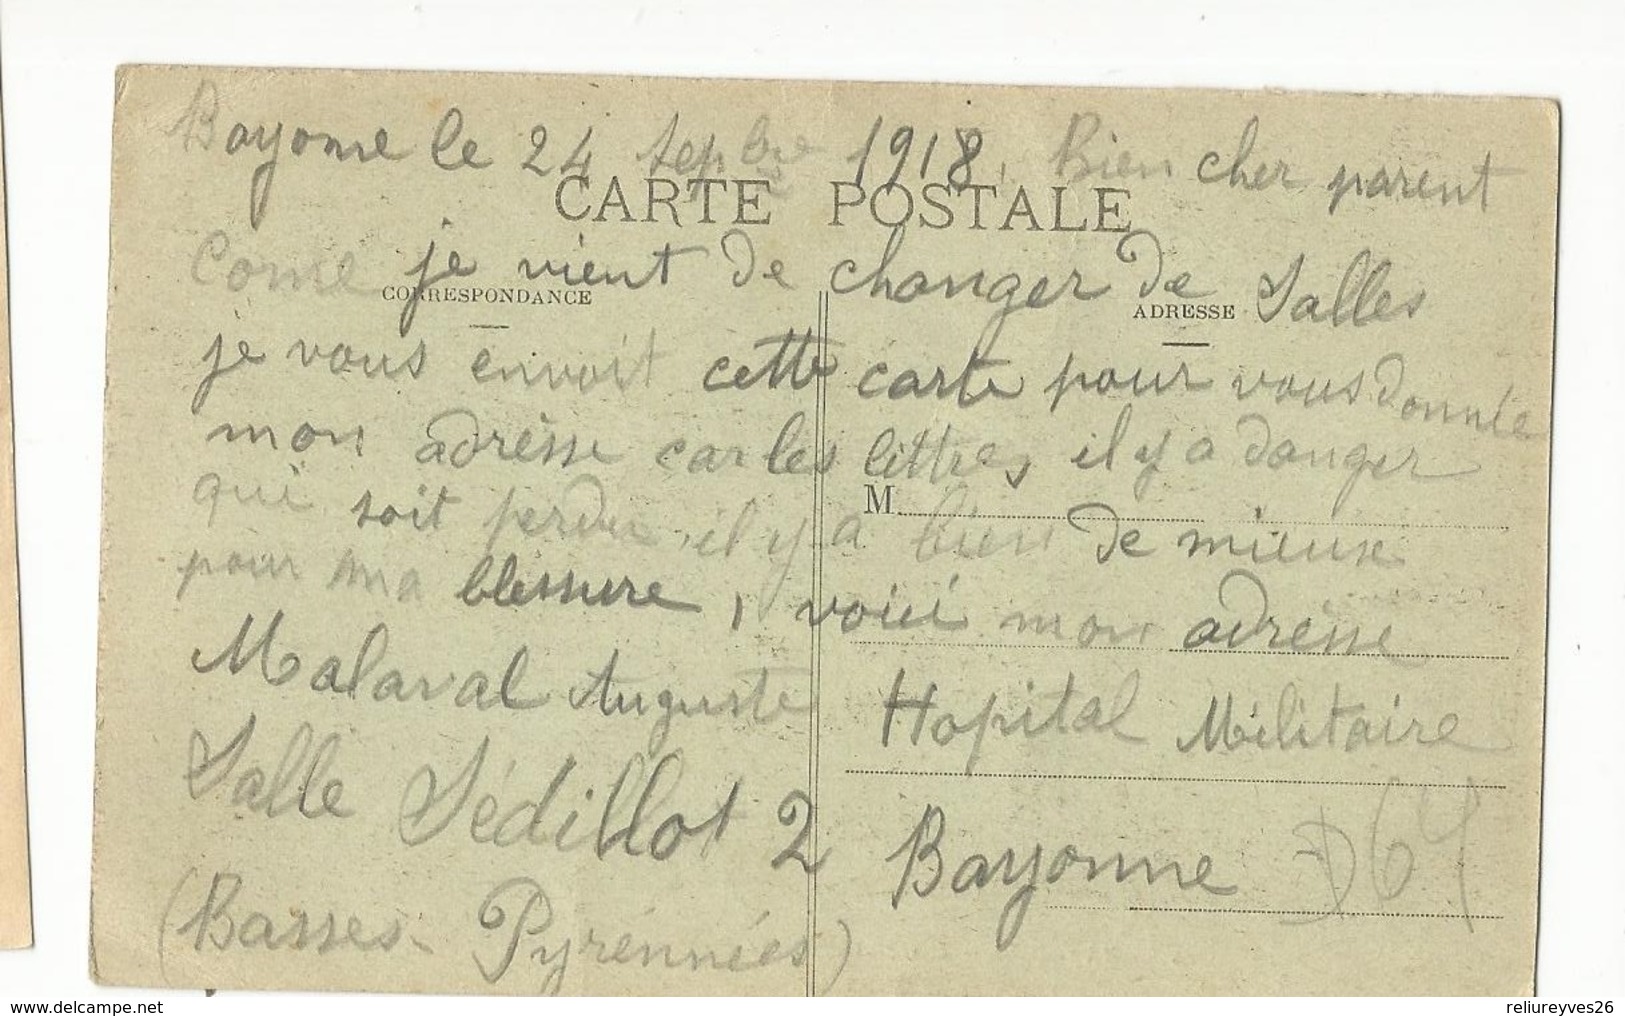 Bayonne le 24 Sepbre 1918. Bien cher parent
CARTE POSTALE
Come je vient de changer de Salles
CORRESPONDANCE
ADRESSE
je vous envoit cette carte pour vous donnle
mon adrèsse car les lettres, il y a danger
qui soit perdu, il y a bien de mieux
M.
pour ma blessure, voici mon adrèsse
Malaval Auguste Hopital Militaire
Salle Sédillot 2 Bayonne D64
(Basses-Pyrénnées)
www.delcampe.net
reliureyves26